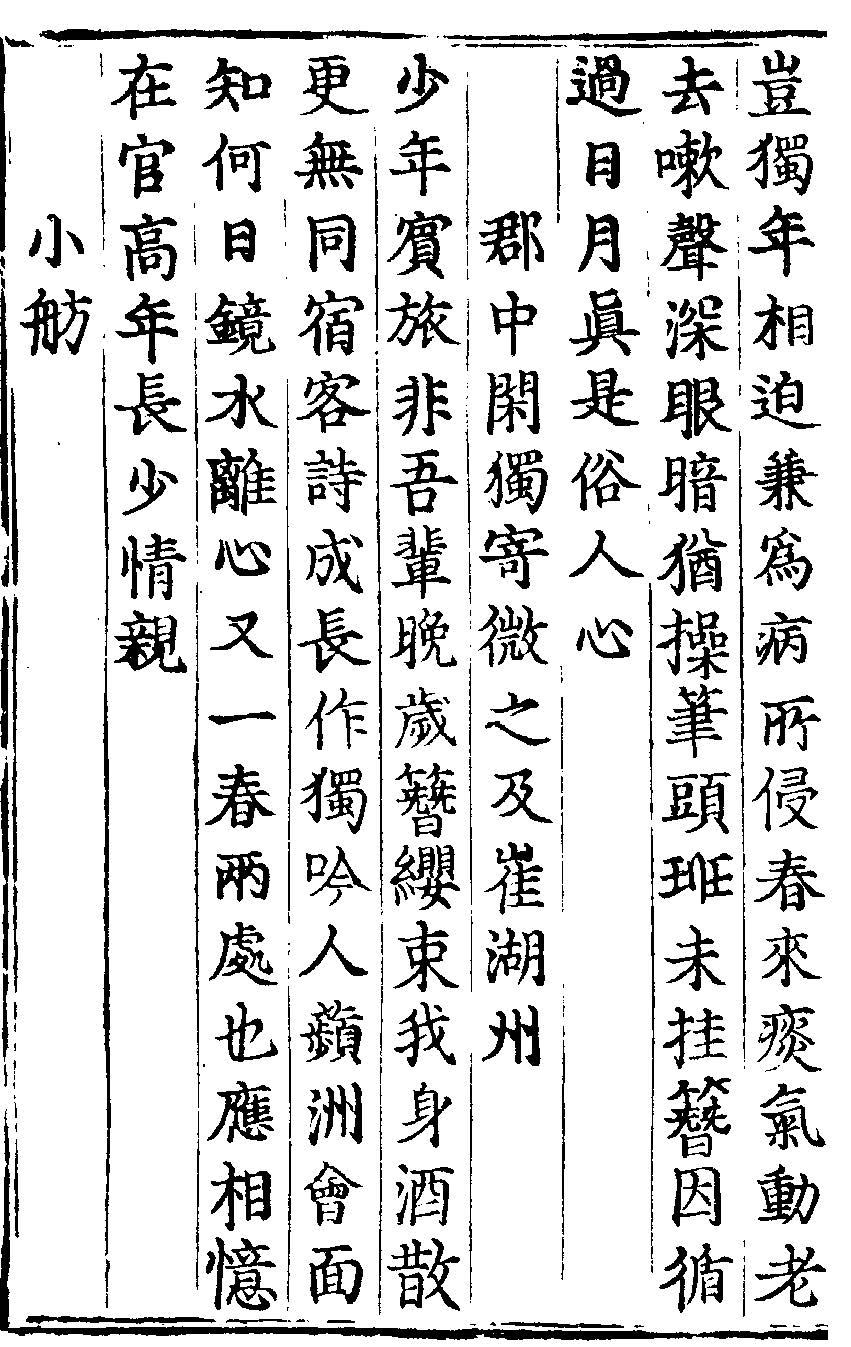 豈獨年相迫兼爲病所侵春來痰氣動老
去嗽聲深眼暗猶操筆頭班未挂簪因循
過日月眞是俗人心
郡中閑獨寄微之及崔湖州
少年賓旅非吾輩晚歲簪纓束我身酒散
更無同宿客詩成長作獨吟人蘋洲會面
知何日鏡水離心又一春兩處也應相憶
在官高年長少情親
小舫